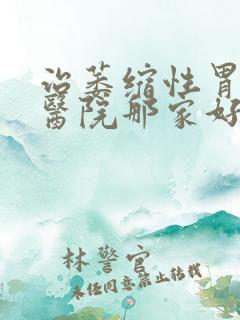 治萎缩性胃
醫院那家好
林警官
未经同意禁止转载